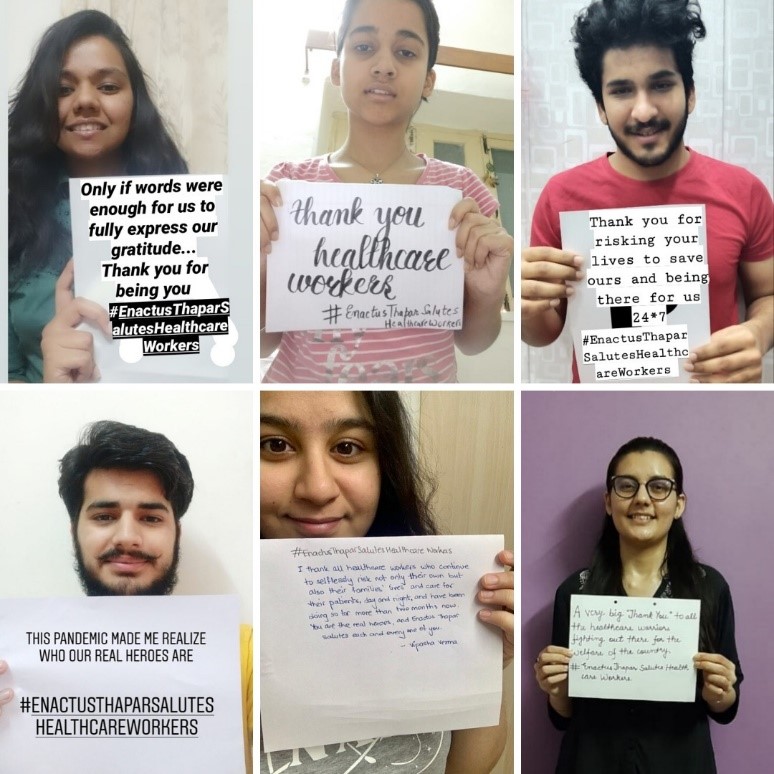 Only if words were
enough for us to
fully express our
gratitude...
Thank you for
being you
#EnactusTharparS
alutesHealthcare
Workers
thank you
healthcare
workers
#EnactusThaparSalutes
HealthcareWorkers
Thank you for
risking your
lives to save
ours and being
there for us
24*7
#EnactusThapar
SalutesHealthc
areWorkers
THIS PANDEMIC MADE ME REALIZE
WHO OUR REAL HEROES ARE
#ENACTUSTHAPARSALUTES
HEALTHCAREWORKERS
#EnactusThaparSalutesHealthcare Workers
I thank all healthcare workers who continue
to selflessly risk not only their own but
also their families' lives and care for
their patients, day and night, and have been
doing so for more than two months now.
You are the real heroes, and Enactus Thapar
salutes each and every one of you.
Verma
A very big "Thank You" to all
the healthcare warriors
fighting out there for the
welfare of the country.
#EnactusThapar Salutes Health
care Workers